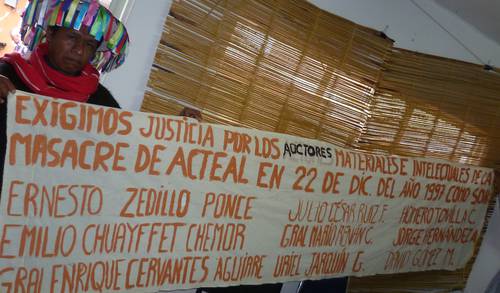 EXIGIMOS JUSTICIA POR LOS AUCTORES MATERIALES E INTELECTUALES DE LA
MASACRE DE ACTEAL EN 22 DE DIC. DEL AÑO 1997 COMO SON
ERNESTO ZEDILLO PONCE JULIO CÉSAR RUIZ F. HOMERO TOVILLA C.
EMILIO CHUAYFFET CHEMOR GRAL MARIO RENÁN C. JORGE HERNÁNDEZ A.
GRAL ENRIQUE CERVANTES AGUIRRE URIEL JARQUÍN G. DAVID GÓMEZ M.